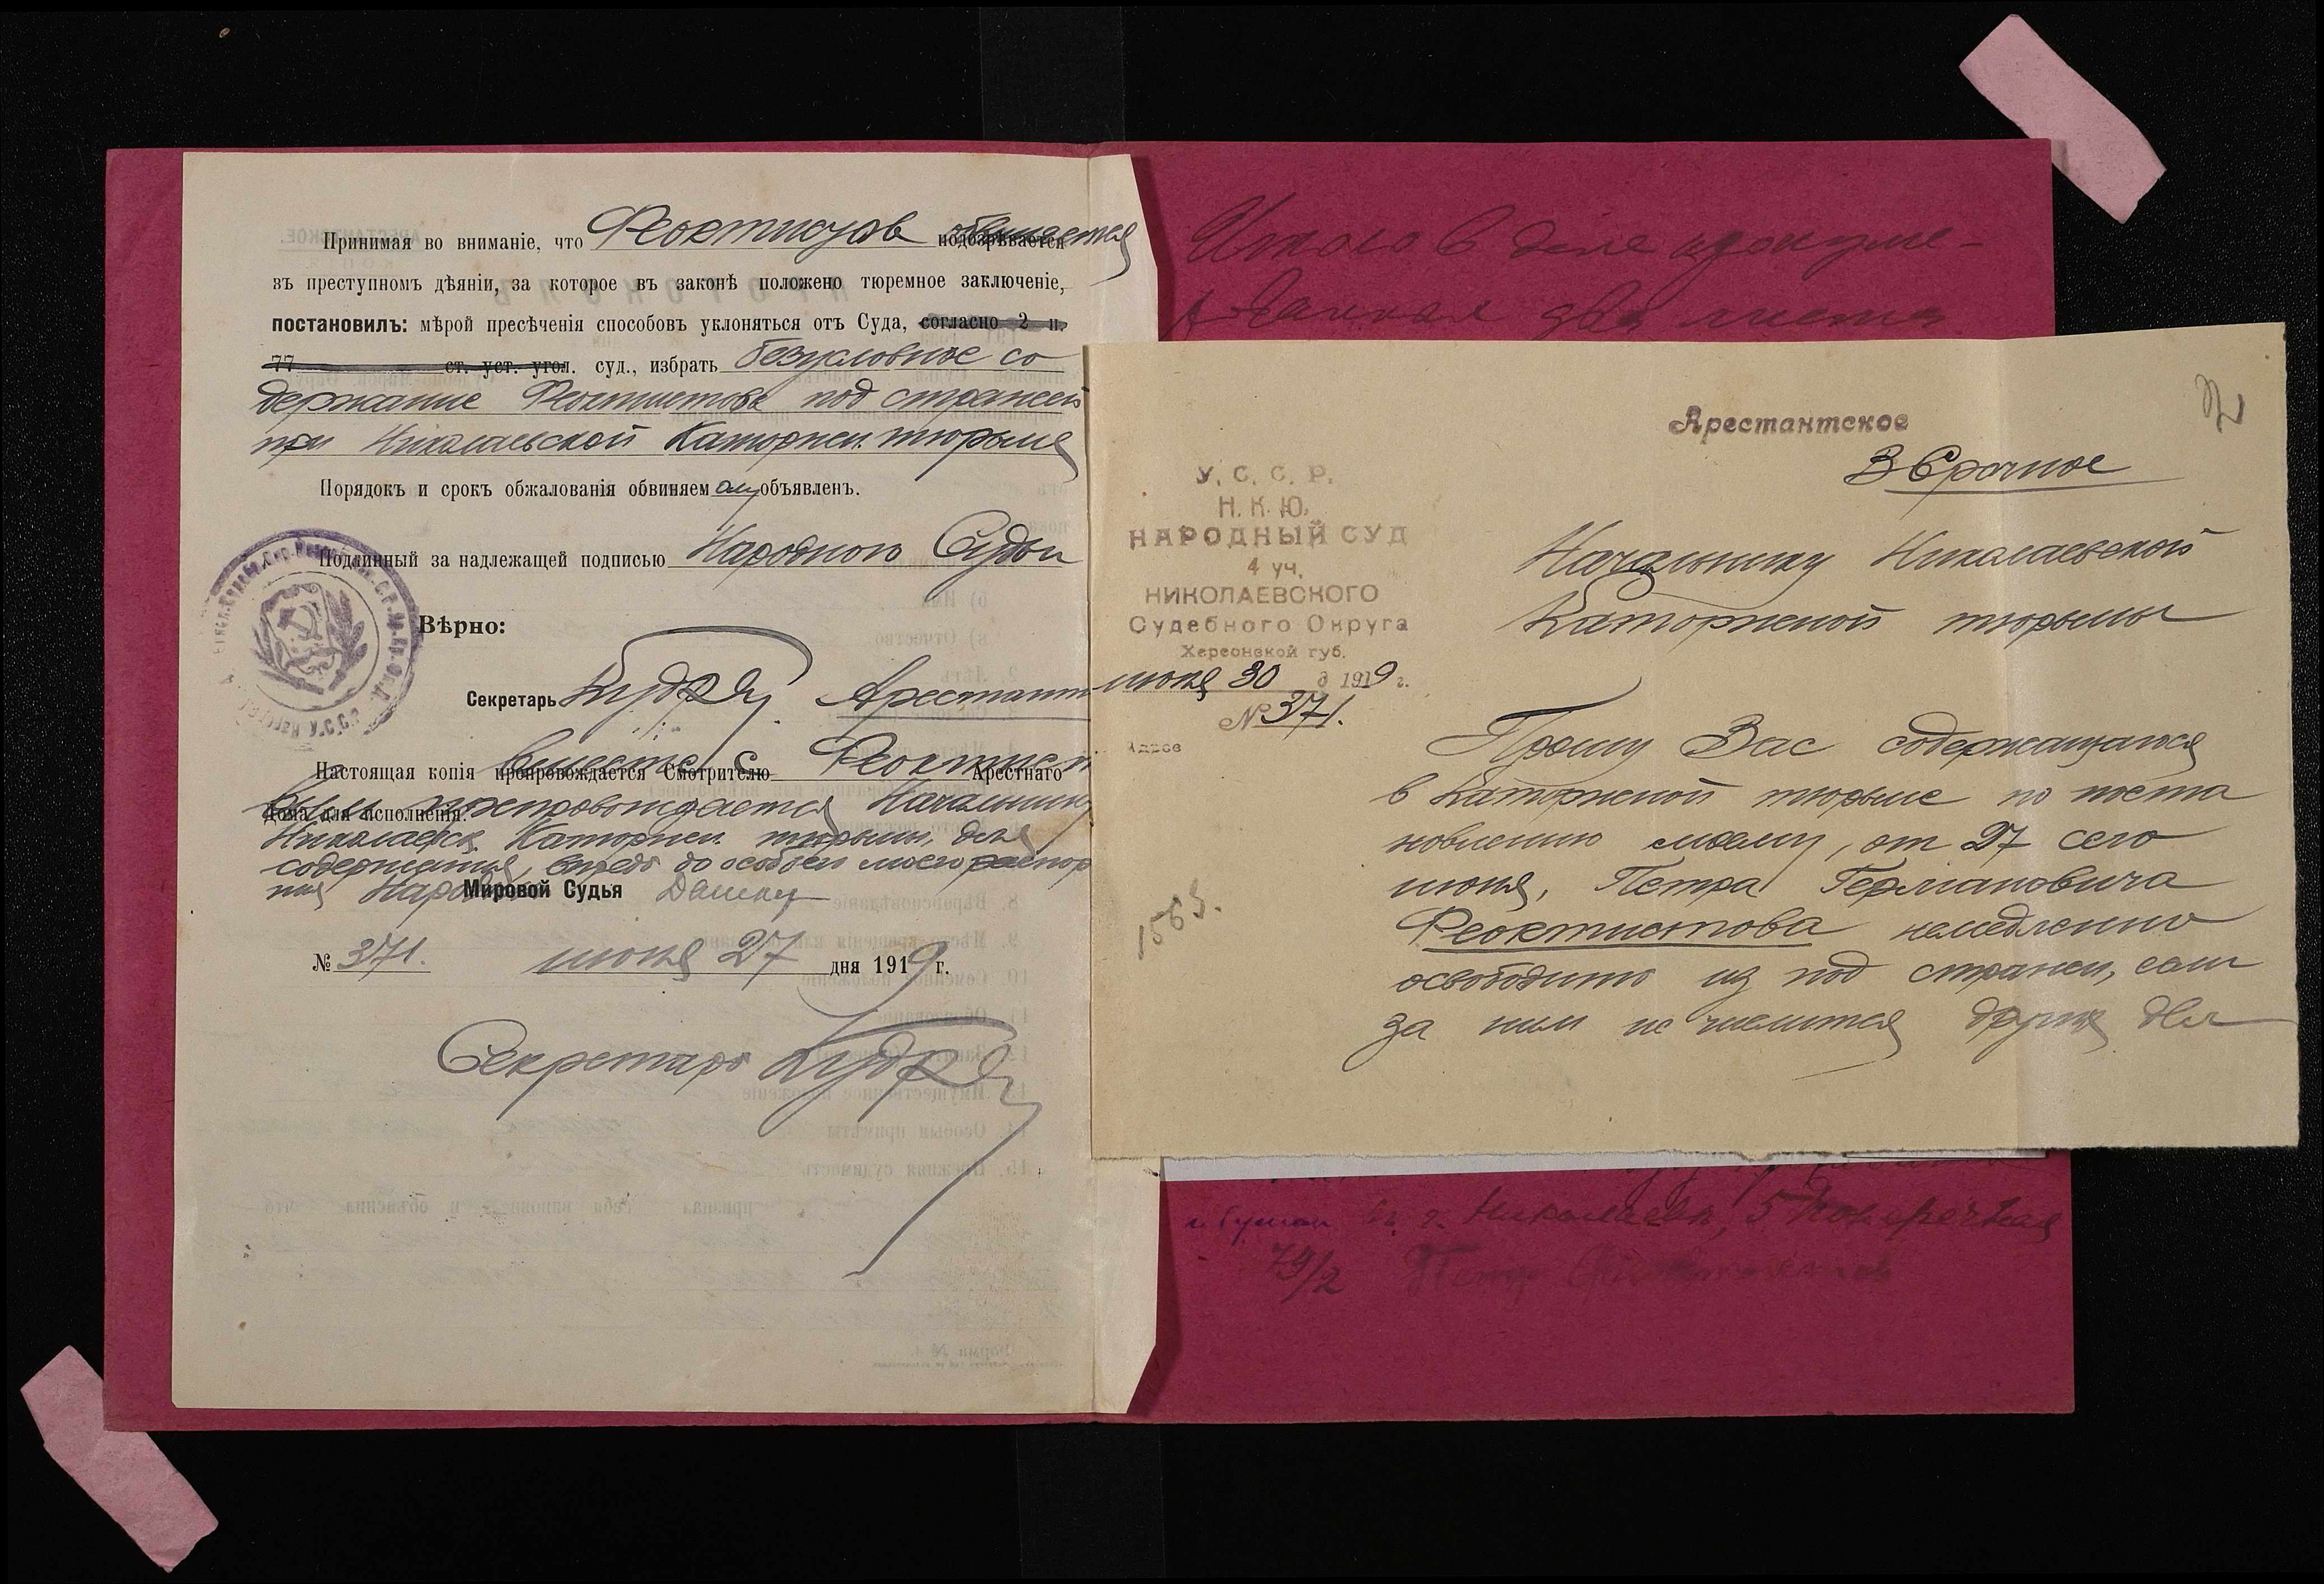 Принимая во вниманіе, что Феоктистов обвиняется подозрѣвается
въ преступномъ дѣяніи, за которое въ законѣ положено тюремное заключеніе,
постановилъ: мѣрой пресѣченія способовъ уклоняться отъ Суда, согласно 2 п.
77 ст. уст. угол. суд., избрать безусловное со
держание Феоктистова под стражей
при Николаевской Каторжн. тюрьме
Порядокъ и срокъ обжалованія обвиняемому объявленъ.
Подлинный за надлежащей подписью Народного Судьи
Вѣрно:
Секретарь Кудря Арестант
вместе с Феоктист
Настоящая копія препровождается Смотрителю Арестнаго
овым препровождается Начальнику
Дома для исполненія.
Николаевск. Каторжн. тюрьмы, для
содержания, впредь до особого моего распор
ния Народный Мировой Судья
№ 371. июня 27 дня 1919 г.
Секретарь Кудря
Арестантское
Срочное
У. С. С. Р.
Н. К. Ю.
НАРОДНЫЙ СУД
4 уч.
НИКОЛАЕВСКОГО
Судебного Округа
Херсонской губ.
июня 30 д 1919 г.
№ 371.
Адрес
Начальнику Николаевской
Каторжной тюрьмы
Прошу Вас содержащагося
в Каторжной тюрьме по поста
новлению моему, от 27 сего
июня, Петра Германовича
Феоктистова немедленно
освободить из под стражи, если
за ним не числится других дел
1563.
Итого в деле
два листа
в г. Николаев, 5 Поперечная
79/2 Петр